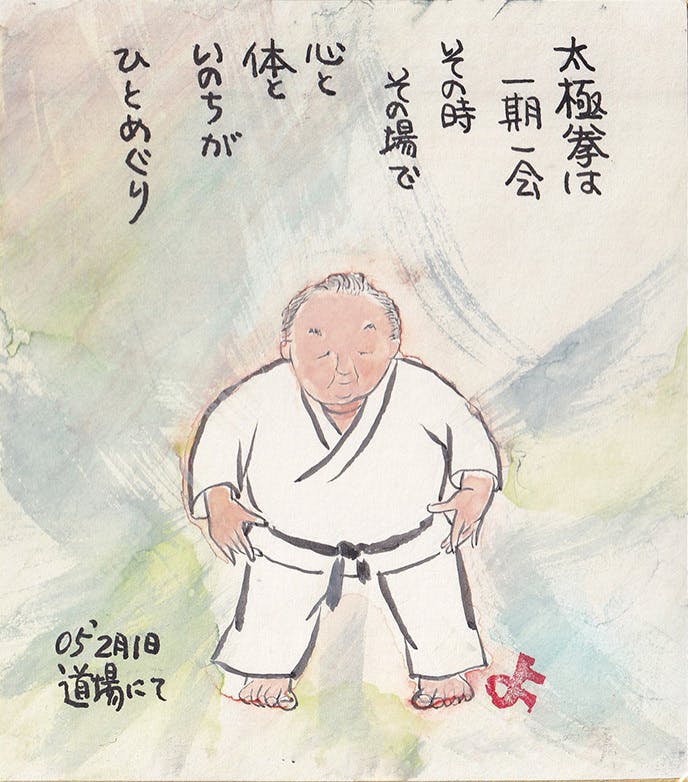 太極拳は
一期一会
その時
その場で
心と
体と
いのちが
ひとめぐり
05' 2月1日
道場にて